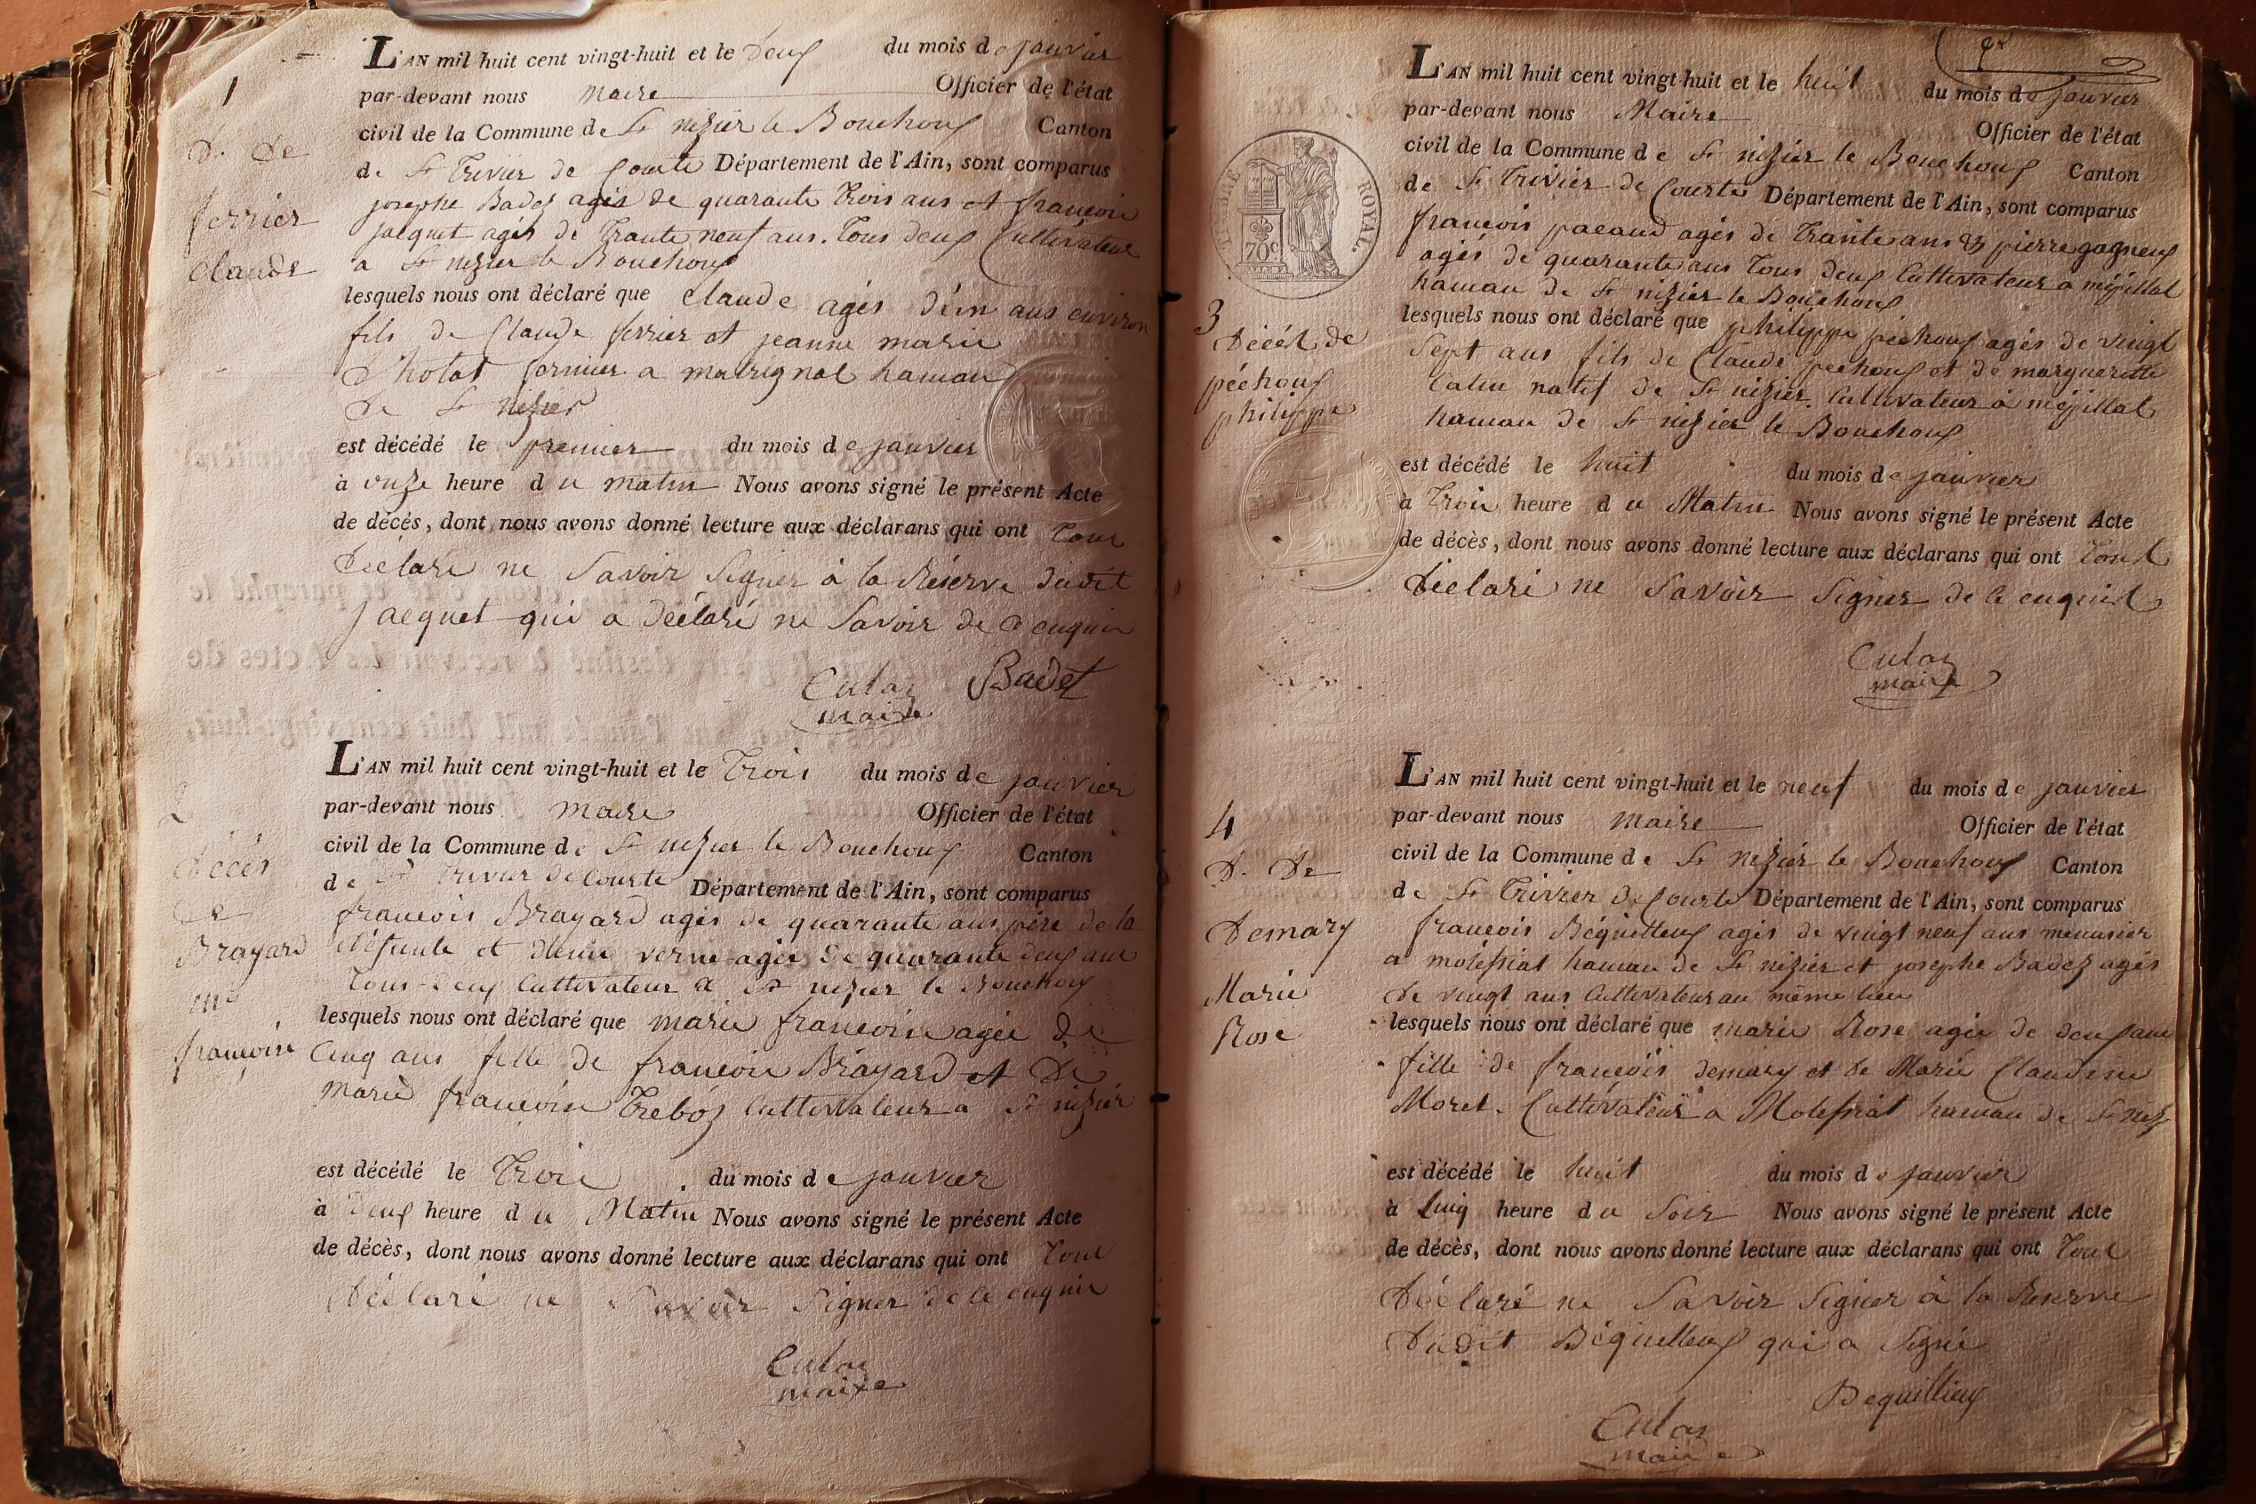 1
D. De
ferrier
Claude
L'AN mil huit cent vingt-huit et le deux du mois de janvier
par-devant nous Maire Officier de l'état
civil de la Commune de St nizier le Bouchoux Canton
de St Trivier de Courte Département de l'Ain, sont comparus
josephe Badez agés de quarante trois ans et françois
jacquet agés de Trante neuf ans. tous deux Cultivateur
a St nizier le Bouchoux
lesquels nous ont déclaré que Claude agés d'un ans environ
fils de Claude ferrier et jeanne marie
fermier a hamau
De St nizier
est décédé le premier du mois de janvier
à onze heure du matin Nous avons signé le présent Acte
de décés, dont nous avons donné lecture aux déclarans qui ont tous
Déclaré ne Savoir Signer à la Réserve dudit
jacquet qui a Déclaré ne Savoir de a enquir
Culaz Badet
maire
2
Décés
De
Brayard
me
françoise
L'AN mil huit cent vingt-huit et le Trois du mois de janvier
par-devant nous maire Officier de l'état
civil de la Commune de St nizier le Bouchoux Canton
de St Trivier de Courte Département de l'Ain, sont comparus
françois Brayard agés de quarante ans père de la
défunte et verne agée de quarante deux ans
tous deux Cultivateur a St nizier le Bouchoux
lesquels nous ont déclaré que marie françoise agée de
Cinq ans fille de françois Brayard et De
marie françoise Treboz Cultivateur a St nizier
est décédé le Trois du mois de janvier
à deux heure du Matin Nous avons signé le présent Acte
de décès, dont nous avons donné lecture aux déclarans qui ont tous
Déclaré ne Savoir Signer de ce enquir
Culaz
maire
TIMBRE ROYAL.
70c
3
Décés de
péchoux
philippe
L'AN mil huit cent vingt-huit et le huit du mois de janvier
par-devant nous Maire Officier de l'état
civil de la Commune de St nizier le Bouchoux Canton
de St Trivier de Courte Département de l'Ain, sont comparus
françois pacaud agés de Trante ans et pierre gagneux
agés de quarante ans tous deux Cultivateur a mépillat
hamau de St nizier le Bouchoux
lesquels nous ont déclaré que philippe péchoux agés de vingt
Sept ans fils de Claude péchoux et de marguerite
Catin natif de St nizier Cultivateur à mépillat
hamau de St nizier le Bouchoux
est décédé le huit du mois de janvier
à Trois heure du Matin Nous avons signé le présent Acte
de décès, dont nous avons donné lecture aux déclarans qui ont tous
Déclaré ne Savoir Signer de ce enquir
Culaz
maire
4
D. De
Demary
Marie
Rose
L'AN mil huit cent vingt-huit et le neuf du mois de janvier
par-devant nous maire Officier de l'état
civil de la Commune de St nizier le Bouchoux Canton
de St Trivier de Courte Département de l'Ain, sont comparus
françois Béquilleux agés de vingt neuf ans menusier
a moléssiat hamau de St nizier et josephe Badez agés
De vingt ans Cultivateur au même lieu
lesquels nous ont déclaré que marie Rose agée de deux ans
fille de françois demary et de Marie Claudine
Morel. Cultivateur a Moléssiat hamau de St niz
est décédé le huit du mois de janvier
à Cinq heure du Soir Nous avons signé le présent Acte
de décès, dont nous avons donné lecture aux déclarans qui ont tous
Déclaré ne Savoir Signer à la Reserve
Dudit Béquilleux qui a Signé
Bequillieux
Culaz
maire